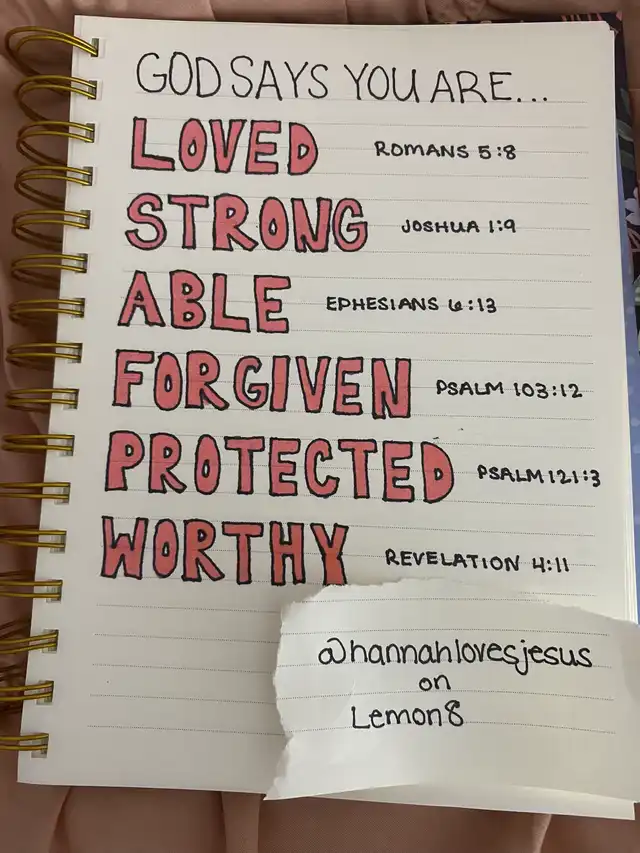 GOD SAYS YOU ARE...
LOVED ROMANS 5:8
STRONG JOSHUA 1:9
ABLE EPHESIANS 6:13
FORGIVEN PSALM 103:12
PROTECTED PSALM 121:3
WORTHY REVELATION 4:11
@hannahlovesjesus
on
Lemon8